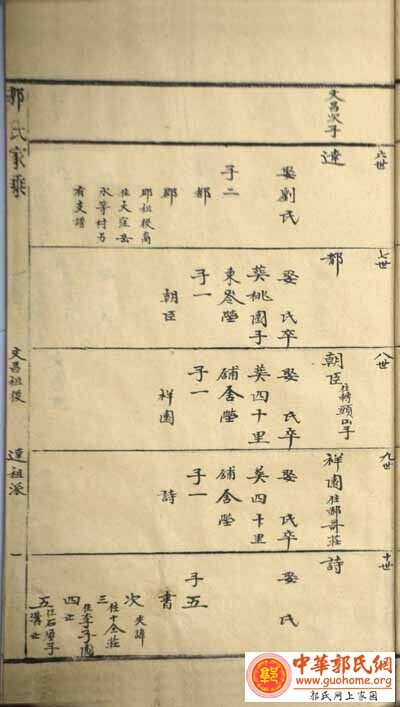 郭氏家乘
文昌祖後
達祖派
一
文昌次子
六世
達
娶劉氏
子二
都
郡
郡祖後裔
住天窪岳
水等村另
有支譜
七世
都
娶 氏卒
葬桃園子
東嶺塋
子一
朝臣
八世
朝臣住磚頭山子
娶 氏卒
葬四十里
舖舍塋
子一
祥園
九世
祥園住郝哥莊
娶 氏卒
葬四十里
舖舍塋
子一
詩
十世
詩
娶 氏
子五
書
次 失諱
三 住十全莊
四 住李子園
五 住石屋子
中華郭氏網
www.guohome.org
郭氏网上家园